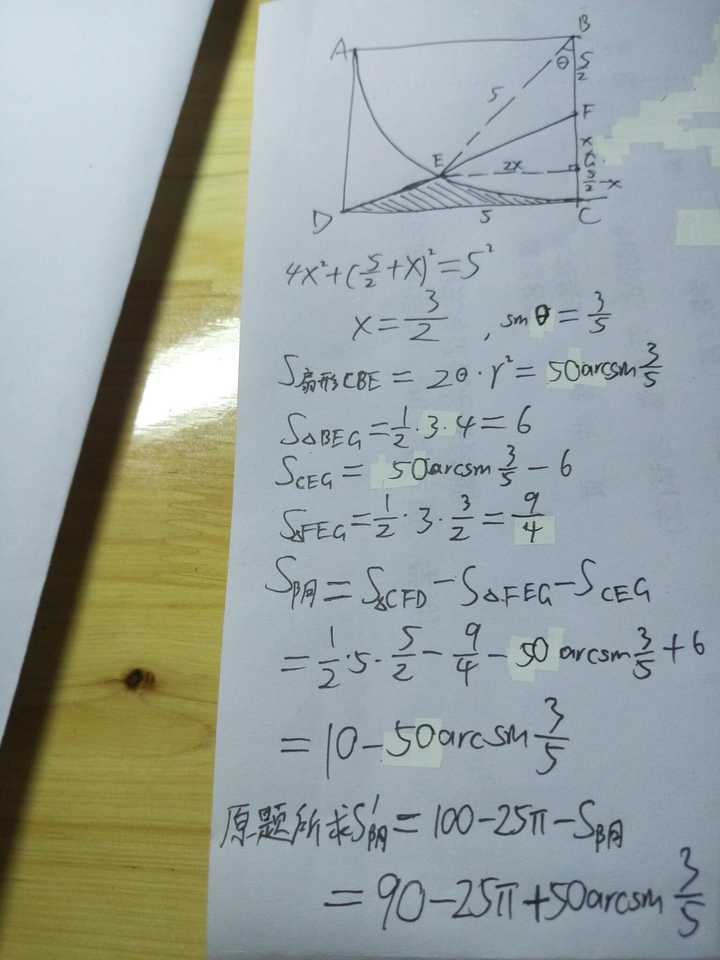 A
B
θ
5/2
5
F
E
x
2x
G
5/2-x
D
5
C
4x²+(5/2+x)²=5²
x=3/2 , sinθ=3/5
S扇形CBE=2θ·r²=50arcsin3/5
S△BEG=1/2·3·4=6
SCEG= 50arcsin3/5-6
S△FEG=1/2·3·3/2=9/4
S阴=S△CFD-S△FEG-SCEG
=1/2·5·5/2-9/4-50arcsin3/5+6
=10-50arcsin3/5
原题所求S'阴=100-25π-S阴
=90-25π+50arcsin3/5